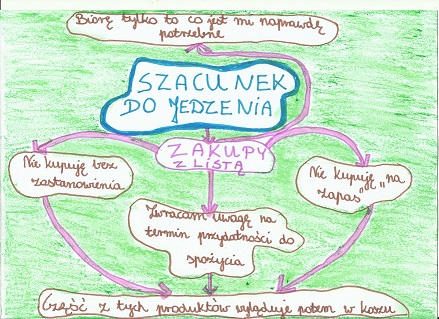 Biorę tylko to co jest mi naprawdę
potrzebne
SZACUNEK
DO JEDZENIA
ZAKUPY
Z LISTĄ
Nie kupuję bez
zastanowienia
Nie kupuję „na
zapas"
Zwracam uwagę na
termin przydatności do
spożycia
Część z tych produktów wyląduje potem w koszu